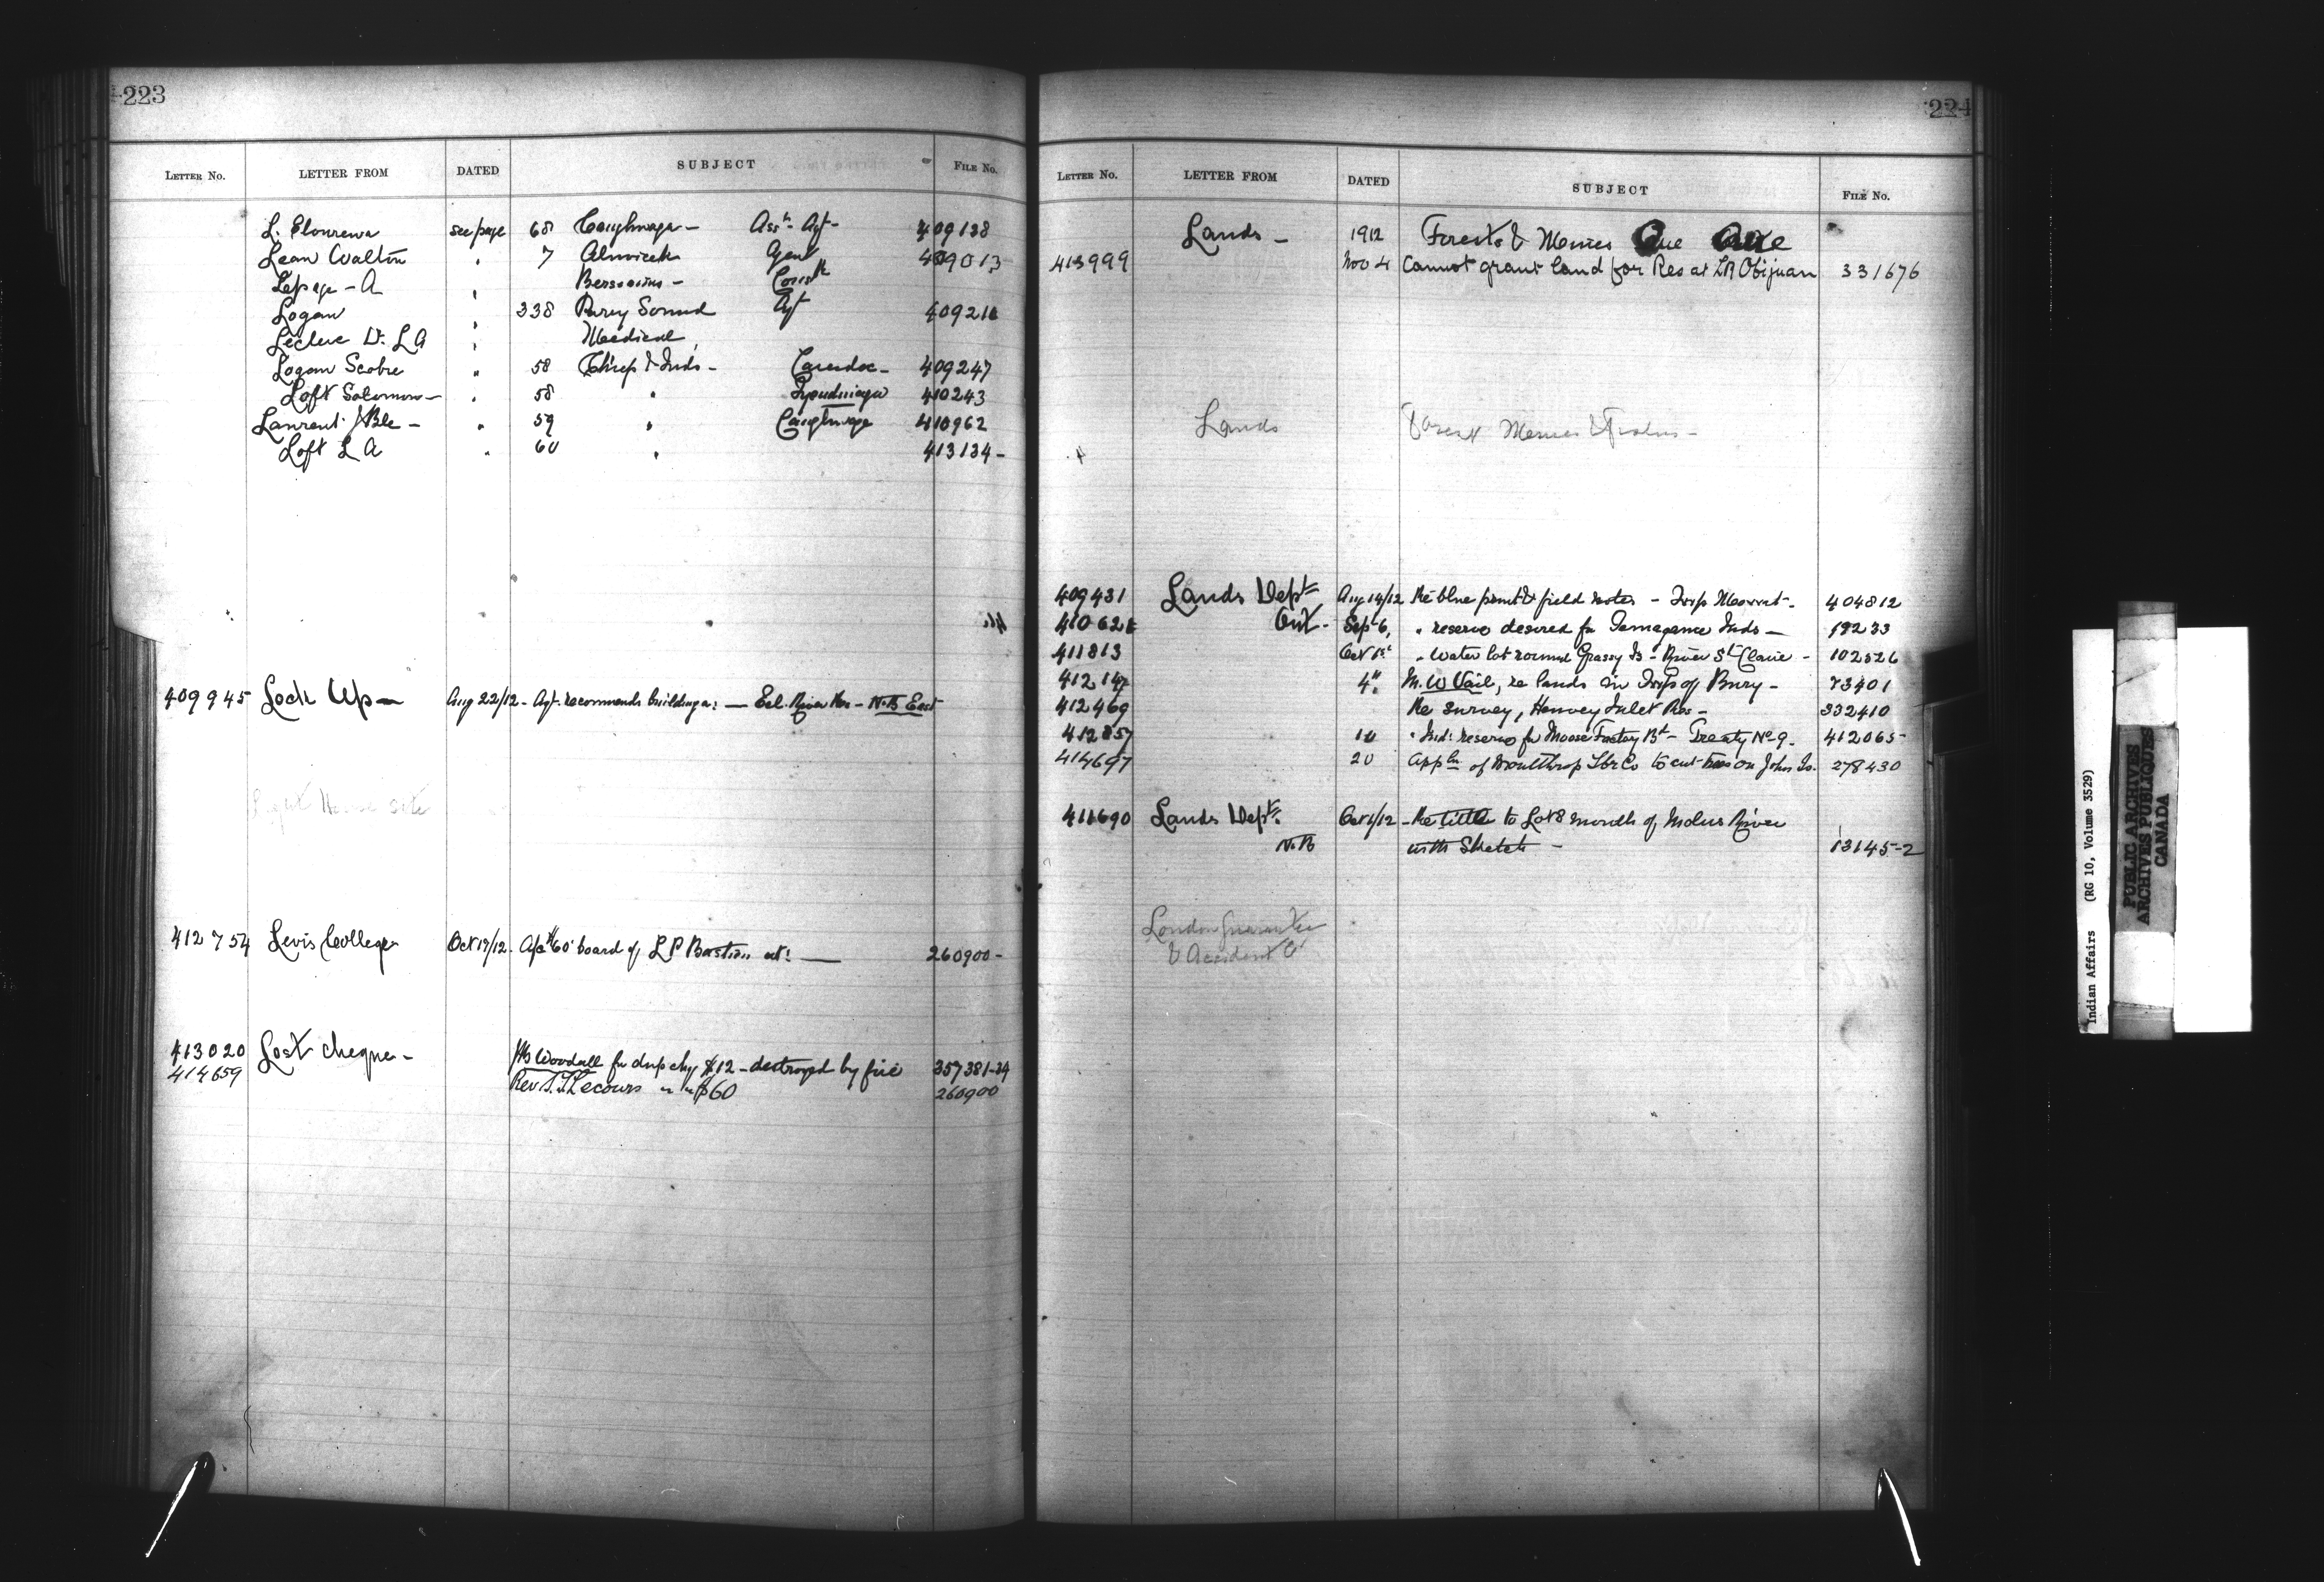 223
LETTER NO. LETTER FROM DATED SUBJECT FILE No.
L. Elonrewa see page 68 Caughnaga - Assn. Agt - 409138
Lean Walton " 7 Alnwick Agent 409013
Lepage - A " Bersimis - Const
Logan " 338 Parry Sound Agt 409211
Leclerc Dr. L A " Medical
Logan Scobie " 58 Chiefs & Inds - Caradoc - 409247
Loft Solomon - " 58 " Tyendinaga 410243
Laurent J Bte - " 59 " Caughnaga 410962
Loft L A " 60 " 413134 -
409945 Lock Up - Aug 22/12 - Agt. recommends building a: - Eel River Res - N.B East
Light House site
412754 Levis College Oct 19/12 - A/c $60 board of L P Bastien at: - 260900 -
413020 Lost cheque - Woodall for dup chq $12 - destroyed by fire 357381-24
414659 Rev Lecours " " $60 260900
224
LETTER NO. LETTER FROM DATED SUBJECT FILE No.
Lands - 1912 Forests & Mines Que
413999 Nov 4 Cannot grant land for Res at Obijuan 331676
Lands Forest Mines &
409431 Lands Dept Aug 14/12 Re blue print & field notes - Twp 404812
410621 Ont - Sep 6, " reserve desired for Temagamie Inds - 19233
411813 Oct 1st " Water lot round Grassy Is - River St Claire - 102526
412147 4" M. W Vail, re lands in Twp of Bury - 73401
412469 Re survey, Henvey Inlet Res - 332410
412857 10 " Ind: reserve for Moose Factory Bd - Treaty No 9. 412065 -
414697 20 Appln of Moulthrop Lbr Co to cut trees on John Is. 278430
411690 Lands Dept. Oct 1/12 - Re title to Lot 8 mouth of Molus River
N.B with Sketch - 13145-2
London Guarantee
& Accident Co
Indian Affairs (RG 10, Volume 3529)
PUBLIC ARCHIVES
ARCHIVES PUBLIQUES
CANADA